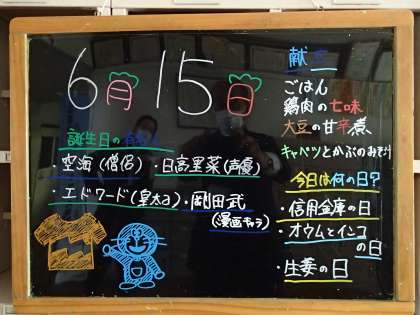 6月15日
誕生日の有名人
・空海(僧侶)・日高里菜(声優)
・エドワード(皇太子)・剛田武
(漫画キャラ)
献立
ごはん
鶏肉の七味
大豆の甘辛煮
キャベツとかぶのおひたし
今日は何の日?
・信用金庫の日
・オウムとインコ
の日
・生姜の日